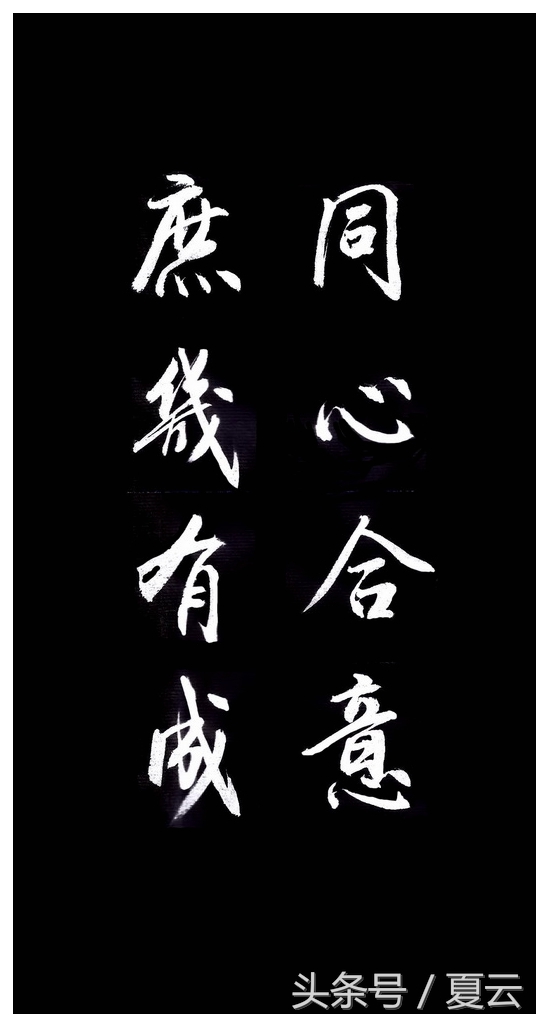 同心合意
庶幾有成
头条号 / 夏云